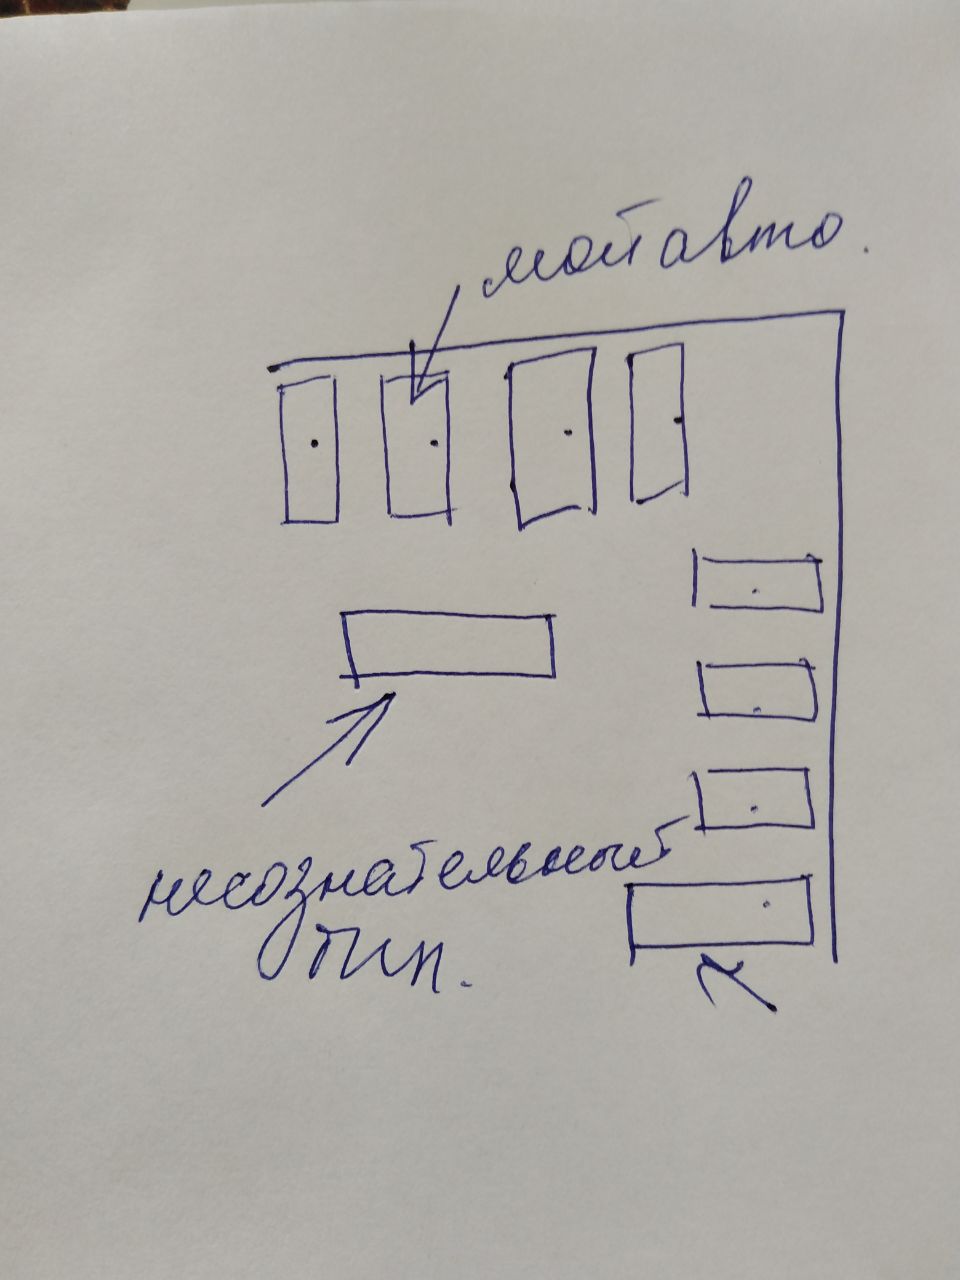 мой авто.
несознательный
тип.